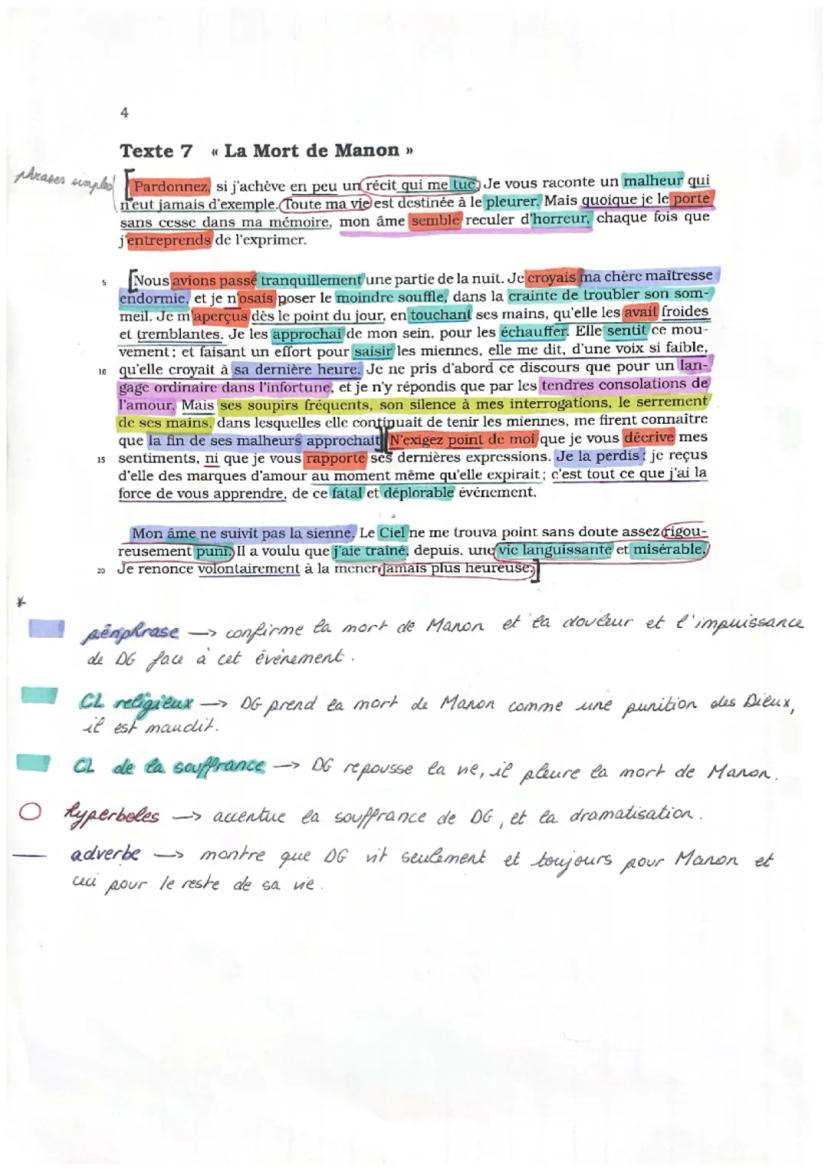 4
Texte 7 « La Mort de Manon »
phrases simples
[Pardonnez, si j'achève en peu un récit qui me tue. Je vous raconte un malheur qui
n'eut jamais d'exemple. Toute ma vie est destinée à le pleurer. Mais quoique je le porte
sans cesse dans ma mémoire, mon âme semble reculer d'horreur, chaque fois que
j'entreprends de l'exprimer.
5 [Nous avions passé tranquillement une partie de la nuit. Je croyais ma chère maîtresse
endormie, et je n'osais poser le moindre souffle, dans la crainte de troubler son som-
meil. Je m'aperçus dès le point du jour, en touchant ses mains, qu'elle les avait froides
et tremblantes. Je les approchai de mon sein, pour les échauffer. Elle sentit ce mou-
vement ; et faisant un effort pour saisir les miennes, elle me dit, d'une voix si faible,
10 qu'elle croyait à sa dernière heure. Je ne pris d'abord ce discours que pour un lan-
gage ordinaire dans l'infortune, et je n'y répondis que par les tendres consolations de
l'amour. Mais ses soupirs fréquents, son silence à mes interrogations, le serrement
de ses mains, dans lesquelles elle continuait de tenir les miennes, me firent connaître
que la fin de ses malheurs approchait.] [N'exigez point de moi que je vous décrive mes
15 sentiments, ni que je vous rapporte ses dernières expressions. Je la perdis ; je reçus
d'elle des marques d'amour au moment même qu'elle expirait ; c'est tout ce que j'ai la
force de vous apprendre, de ce fatal et déplorable événement.
Mon âme ne suivit pas la sienne. Le Ciel ne me trouva point sans doute assez rigou-
reusement puni. Il a voulu que j'aie traîné, depuis, une vie languissante et misérable.
20 Je renonce volontairement à la mener jamais plus heureuse.]
*
périphrase → confirme la mort de Manon et la douleur et l'impuissance
de DG face à cet événement.
CL religieux → DG prend la mort de Manon comme une punition des Dieux,
il est maudit.
CL de la souffrance → DG repousse la vie, il pleure la mort de Manon.
hyperboles → accentue la souffrance de DG, et la dramatisation.
adverbe → montre que DG vit seulement et toujours pour Manon et
ceci pour le reste de sa vie.